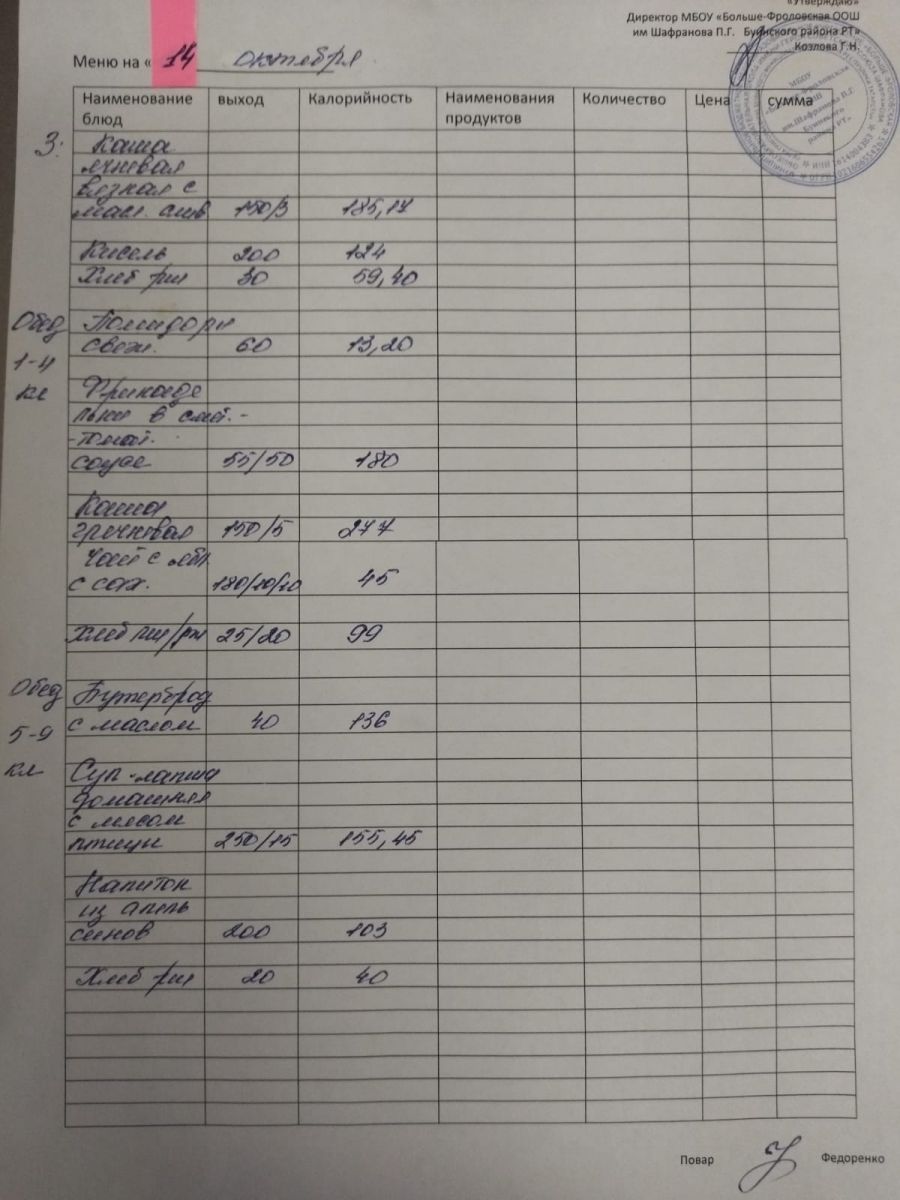 «Утверждаю»
Директор МБОУ «Больше-Фроловская ООШ
им Шафранова П.Г. Буинского района РТ»
Козлова Г.Н.
Меню на « 14 октября
Наименование блюд выход Калорийность Наименования продуктов Количество Цена сумма
З: Каша
ячневая
вязкая с
масл. слив 150/3 185,17
Кисель 200 124
Хлеб рж 30 59,40
Обед Помидоры
свеж. 60 13,20
1-4
кл Фрикаде
льки в смет.-
-томат.
соусе 55/50 180
Каша
гречневая 150/5 277
Чай с ябл.
с сах. 180/10/10 45
Хлеб пш/рж 25/20 99
Обед Бутерброд
5-9 с маслом 40 136
кл Суп-лапша
домашняя
с мясом
птицы 250/15 155,45
Напиток
из апель
синов 200 103
Хлеб рж 20 40
МБОУ
им.Шафранова П.Г.
Буинского
района РТ»
Повар Федоренко